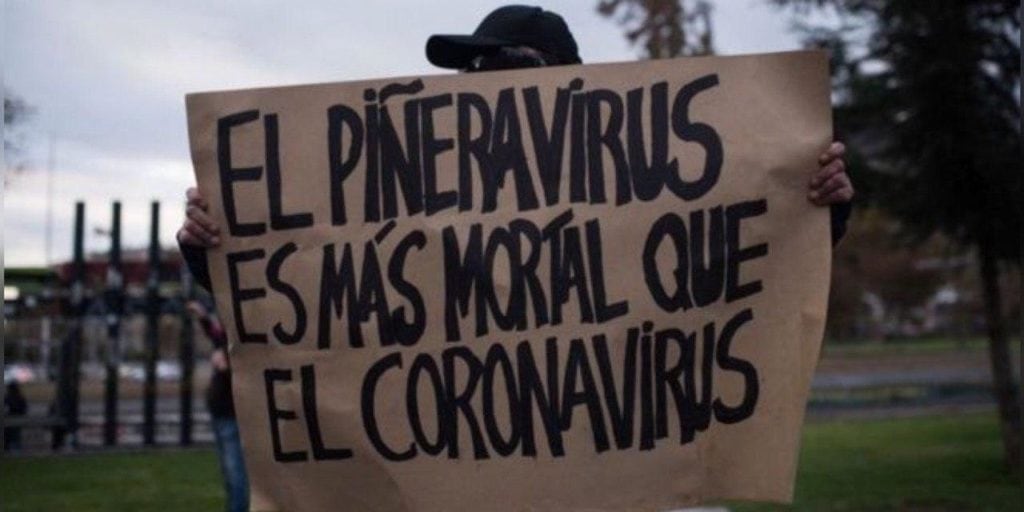 EL PIÑERAVIRUS
ES MÁS MORTAL QUE
EL CORONAVIRUS